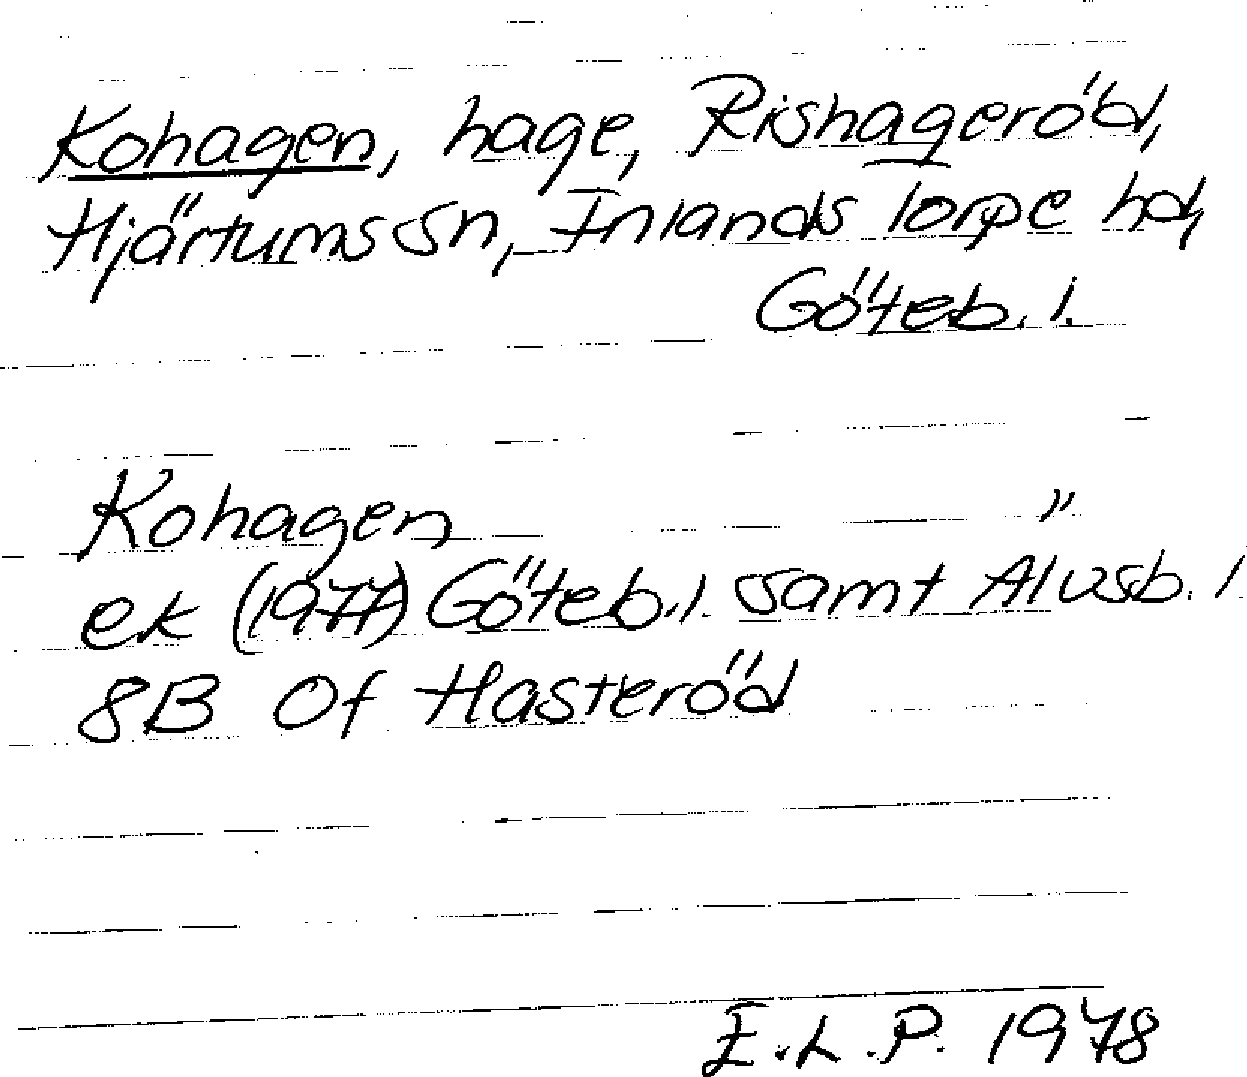 Kohagen, hage, Rishageröd,
Hjärtums sn, Inlands Torpe hd,
Göteb. l.
Kohagen "
ek (1977) Göteb. l. samt Älvsb. l
8B 0f Hasteröd
E.L.P. 1978